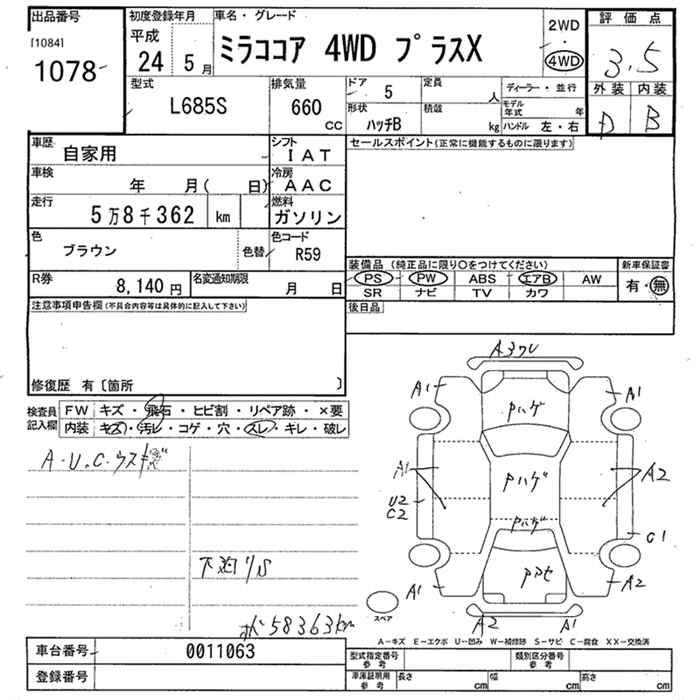 出品番号
[1084]
1078
初度登録年月
平成
24 5月
車名・グレード
ミラココア 4WD プラスX
2WD
・
4WD
評価点
3.5
外装 内装
D B
型式
L685S
排気量
660
CC
ドア
5
定員
人
ディーラー・並行
形状
ハッチB
積載
kg
モデル年式 年
ハンドル 左・右
車歴
自家用
シフト
IAT
車検
年 月( 日)
冷房
AAC
走行
5万8千362 km
燃料
ガソリン
色
ブラウン
色替
色コード
R59
R券
8,140円
名変通知期限
月 日
セールスポイント(正常に機能するものに限ります)
装備品 (純正品に限り〇をつけてください)
PS PW ABS エアB AW
SR ナビ TV カワ
新車保証書
有・無
後日品
注意事項申告欄(不具合内容等は具体的に記入して下さい)
修復歴 有〔箇所 〕
検査員記入欄
FW キズ・飛石・ヒビ割・リペア跡・×要
内装 キズ・汚レ・コゲ・穴・スレ・キレ・破レ
A・U.C.ウスキズ
下廻りS
メ58363km
A3ワレ
A1 A1
Pハゲ
A1 Pハゲ A2
U2
C2
Pハゲ
C1
Pアセ
A1 A2
スペア
A2 A1
A-キズ E-エクボ U-凹み W-補修跡 S-サビ C-腐食 XX-交換済
車台番号 0011063
登録番号
型式指定番号 参考
類別区分番号 参考
車庫証明用 参考
長さ cm 幅 cm 高さ cm